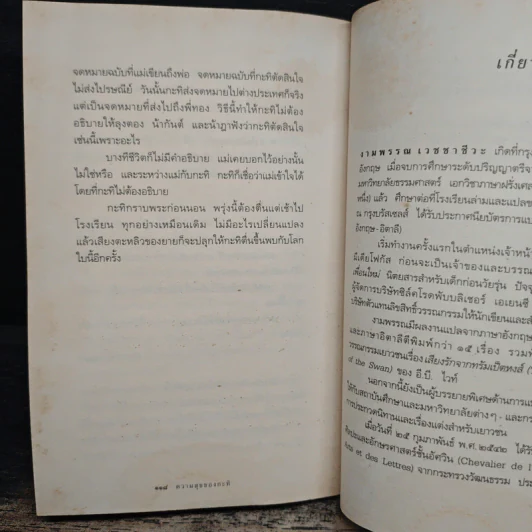 จดหมายฉบับที่แม่เขียนถึงพ่อ จดหมายฉบับที่กะทิตัดสินใจ
ไม่ส่งไปรษณีย์ วันนั้นกะทิส่งจดหมายไปต่างประเทศก็จริง
แต่เป็นจดหมายที่ส่งไปถึงพี่ทอง วิธีนี้ทำให้กะทิไม่ต้อง
อธิบายให้ลุงตอง น้ากันต์ และน้าฎาฟังว่ากะทิตัดสินใจ
เช่นนี้เพราะอะไร
บางทีชีวิตก็ไม่มีคำอธิบาย แม่เคยบอกไว้อย่างนั้น
ไม่ใช่หรือ และระหว่างแม่กับกะทิ กะทิก็เชื่อว่าแม่เข้าใจได้
โดยที่กะทิไม่ต้องอธิบาย
กะทิกราบพระก่อนนอน พรุ่งนี้ต้องตื่นแต่เช้าไป
โรงเรียน ทุกอย่างเหมือนเดิม ไม่มีอะไรเปลี่ยนแปลง
แล้วเสียงตะหลิวของยายก็จะปลุกให้กะทิตื่นขึ้นพบกับโลก
ใบนี้อีกครั้ง
๑๑๘ ความสุขของกะทิ
เกี่ยว
งามพรรณ เวชชาชีวะ เกิดที่กรุง
อังกฤษ เมื่อจบการศึกษาระดับปริญญาตรีจา
มหาวิทยาลัยธรรมศาสตร์ เอกวิชาภาษาฝรั่งเศส
หนึ่ง) แล้ว ศึกษาต่อที่โรงเรียนล่ามและแปลขอ
ณ กรุงบรัสเซลส์ ได้รับประกาศนียบัตรการแป
อังกฤษ-อิตาลี)
เริ่มทำงานครั้งแรกในตำแหน่งเจ้าหน้า
มีเดียโฟกัส ก่อนจะเป็นเจ้าของและบรรณ
เพื่อนใหม่ นิตยสารสำหรับเด็กก่อนวัยรุ่น ปัจจุ
ผู้จัดการบริษัทซิลค์โรดพับบลิเชอร์ เอเยนซี
บริษัทตัวแทนลิขสิทธิ์วรรณกรรมให้นักเขียนและสำ
งามพรรณมีผลงานแปลจากภาษาอังกฤษ
และภาษาอิตาลีตีพิมพ์กว่า ๑๕ เรื่อง รวมทั้
วรรณกรรมเยาวชนเรื่อง เสียงรักจากทรัมเป็ตหงส์ (T
of the Swan) ของ อี.บี. ไวท์
นอกจากนี้ยังเป็นผู้บรรยายพิเศษด้านการแป
ให้กับสถาบันศึกษาและมหาวิทยาลัยต่างๆ และกร
การประกวดนิทานและเรื่องแต่งสำหรับเยาวชน
เมื่อวันที่ ๒๕ กุมภาพันธ์ พ.ศ.๒๕๔๒ ได้รั
ศิลปะและอักษรศาสตร์ชั้นอัศวิน (Chevalier de l'
Arts et des Lettres) จากกระทรวงวัฒนธรรม ประ